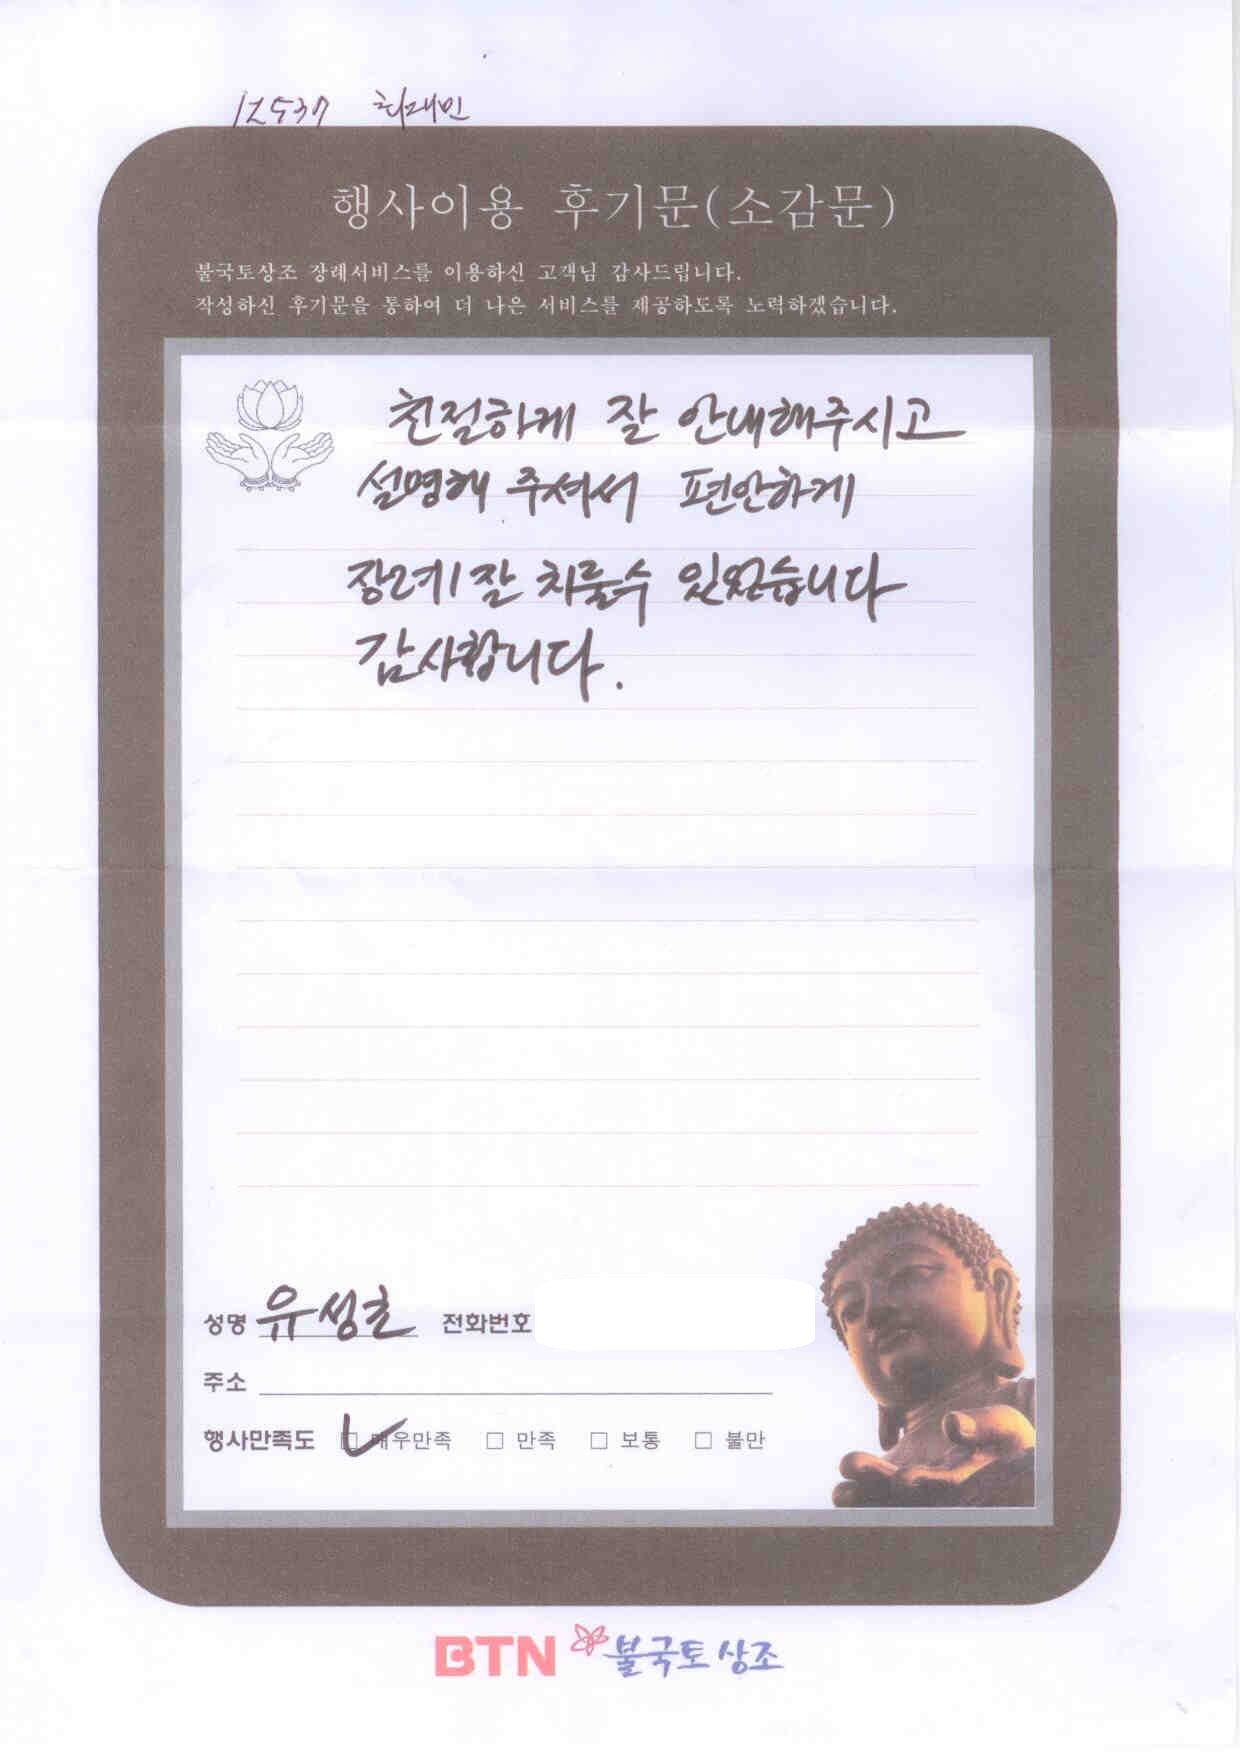 12537 최재민
행사이용 후기문(소감문)
불국토상조 장례서비스를 이용하신 고객님 감사드립니다.
작성하신 후기문을 통하여 더 나은 서비스를 제공하도록 노력하겠습니다.
친절하게 잘 안내해주시고
설명해 주셔서 편안하게
장례 잘 치룰수 있었습니다
감사합니다.
성명 유성호 전화번호
주소
행사만족도 □ 매우만족 □ 만족 □ 보통 □ 불만
BTN 불국토상조